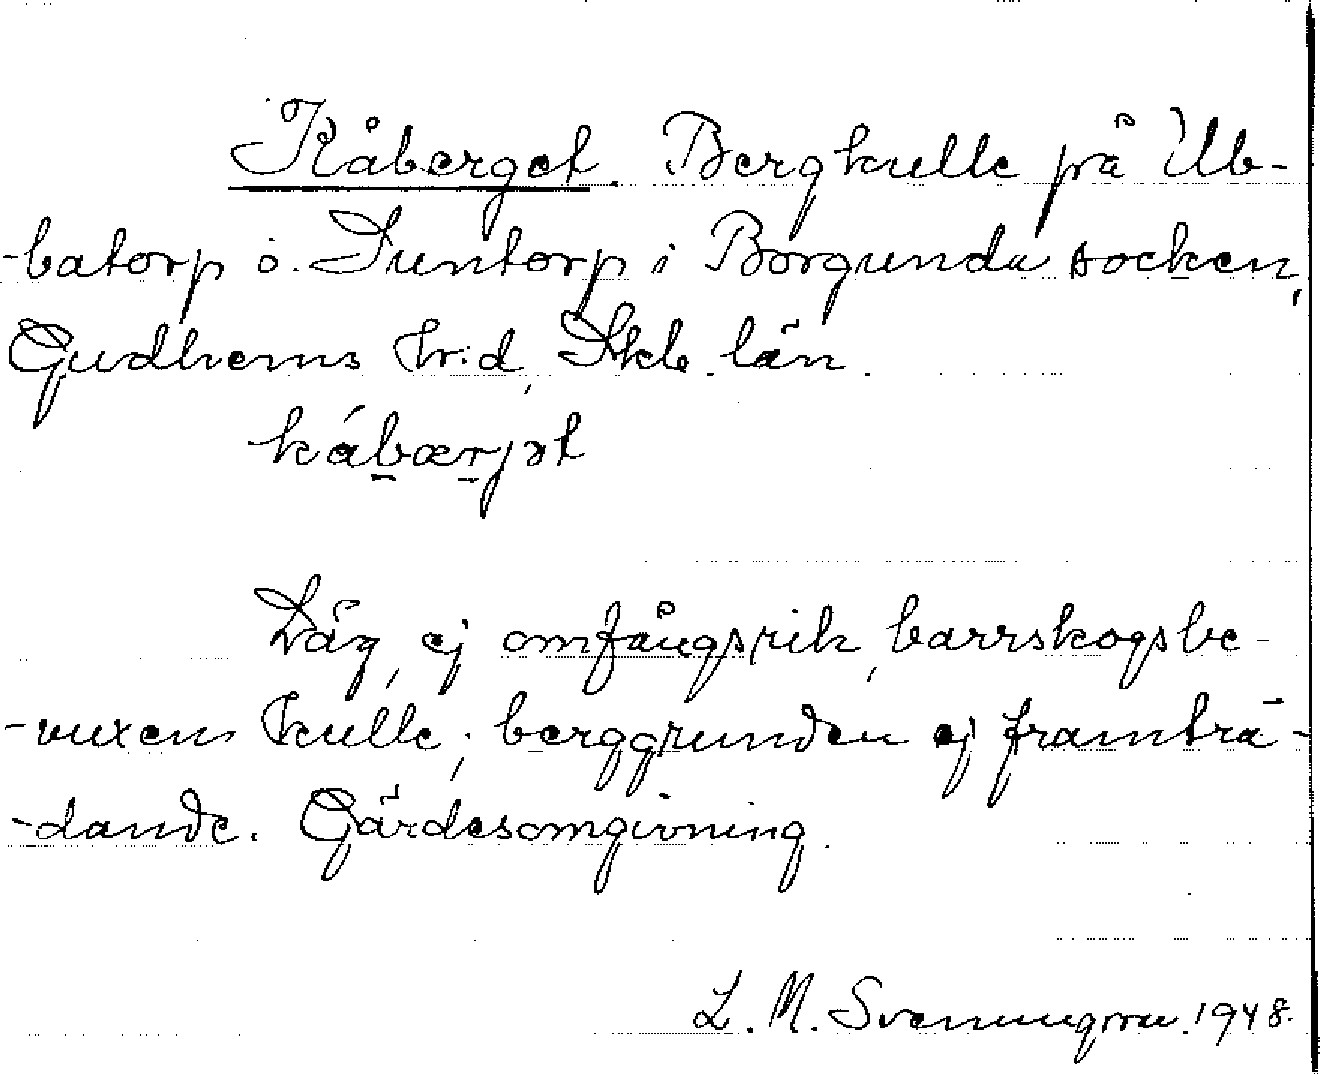 Kåberget. Bergkulle på Ub-
-batorp o. Suntorp i Borgunda socken,
Gudhems h:d, Skb. län.
kábærjət
Låg, ej omfångsrik, barrskogsbe-
-vuxen kulle; berggrunden ej framträ-
-dande. Gärdesomgivning.
L. M. Svenungsson. 1948.